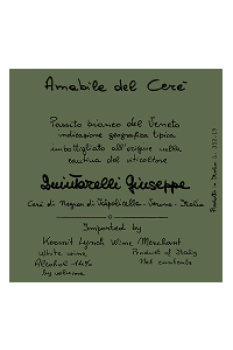 Amabile del Cerè
Passito bianco del Veneto
indicazione geografica tipica
imbottigliato all'origine nella
cantina del viticoltore
Quintarelli Giuseppe
Cerè di Negrar di Valpolicella - Verona - Italia
Imported by
Kermit Lynch Wine Merchant
White wine
Product of Italy
Alcohol 14%
Net contents
by volume
Product in Italia L.